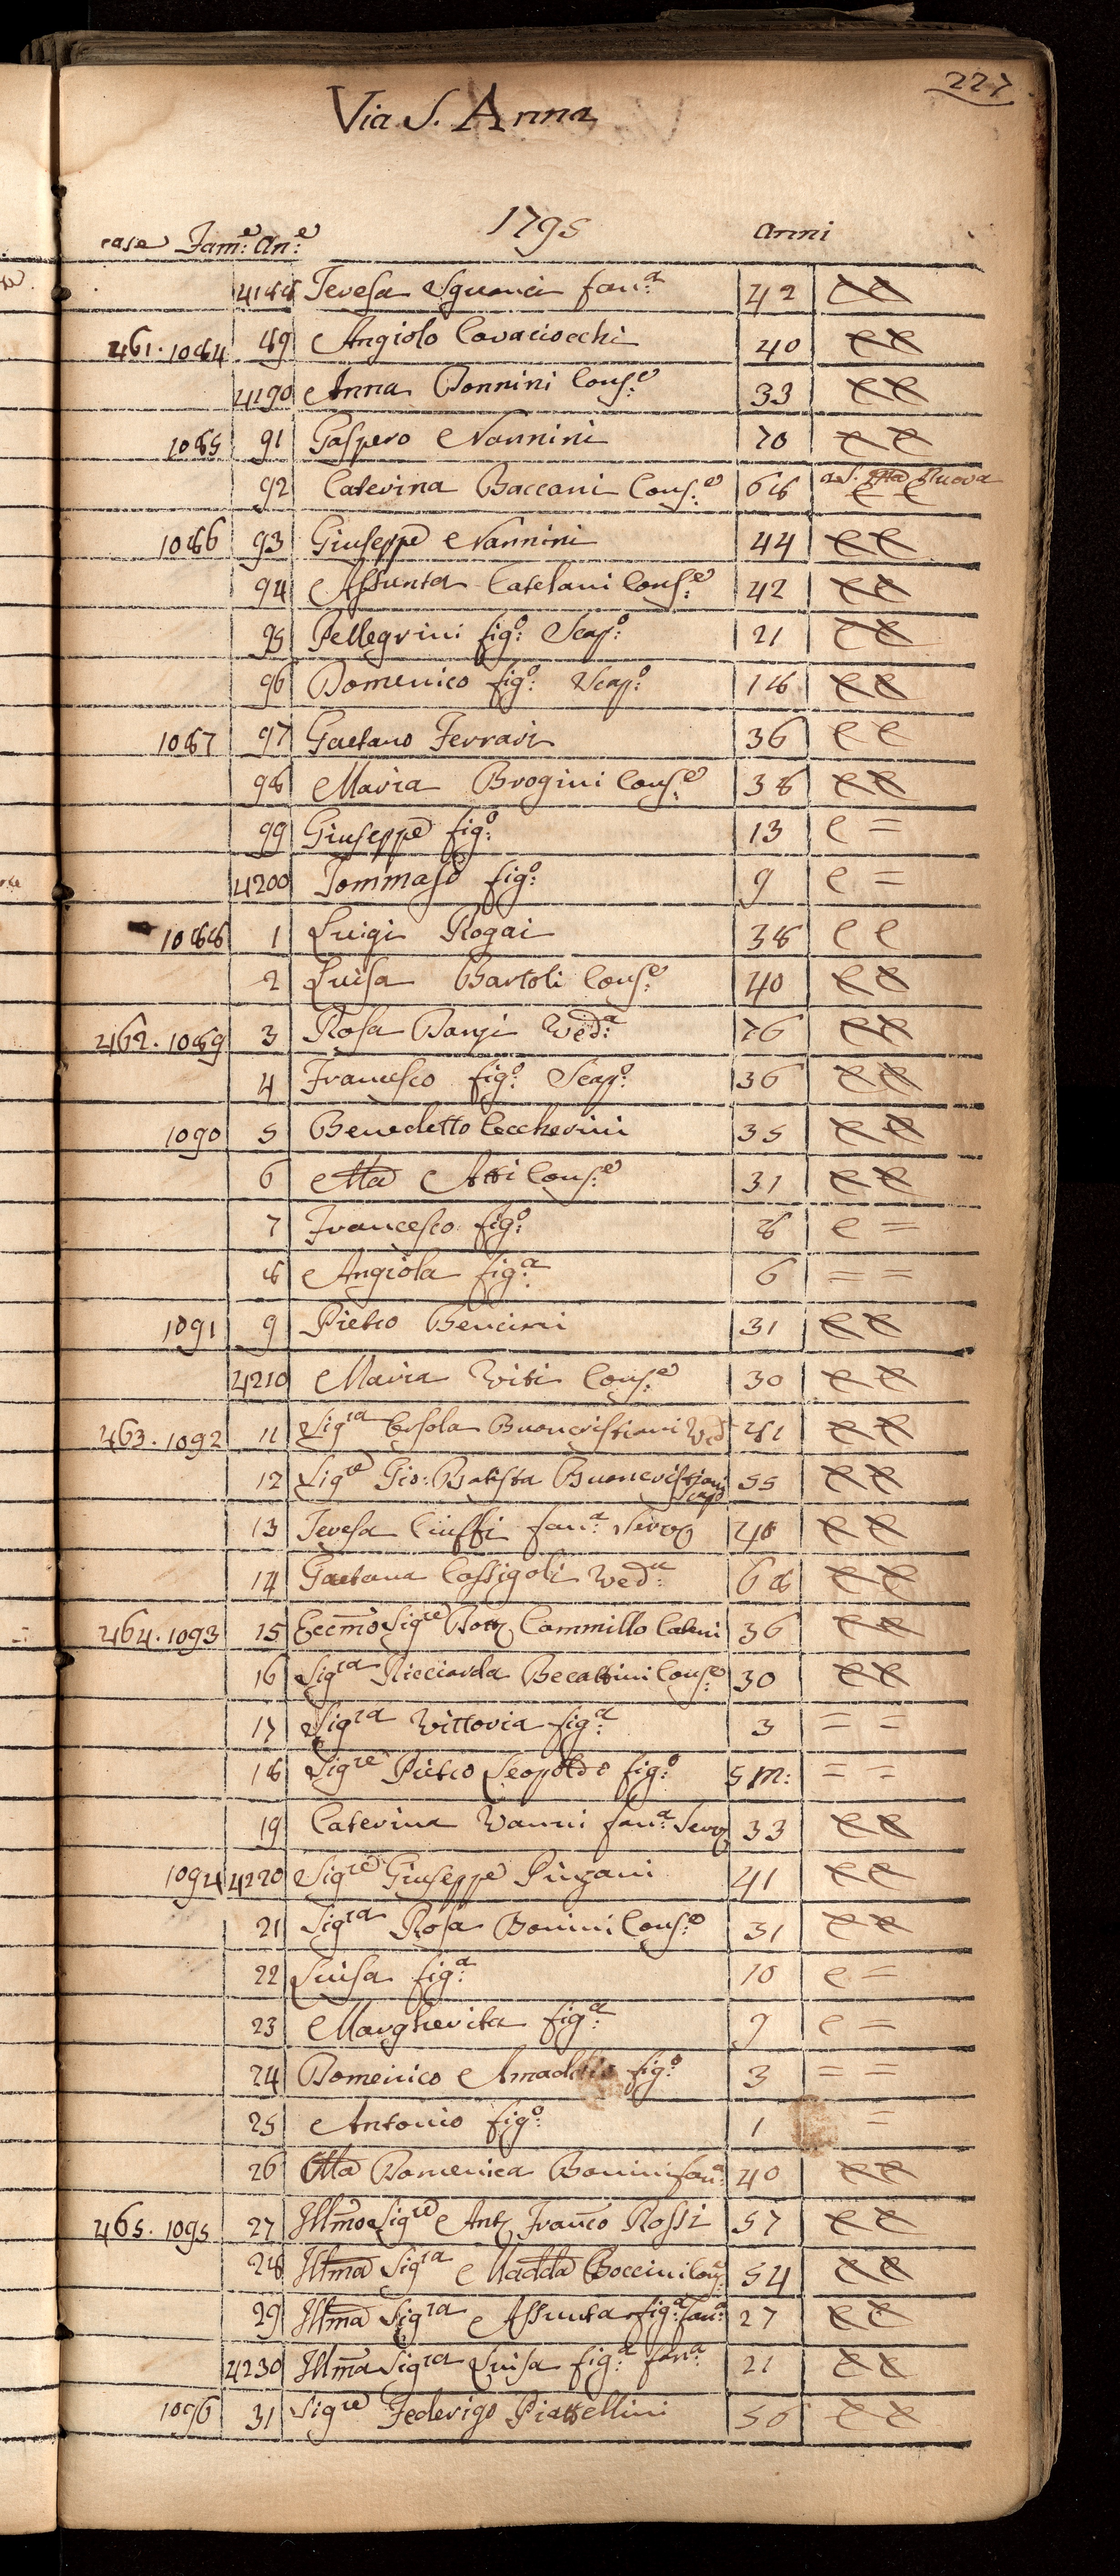 227
Via S. Anna
1795
case Fam:e An:e anni
4188 Teresa Sguanci fan:a 42
461. 1084 89 Angiolo Cavaciocchi 40
4190 Anna Bonnini Cons:e 33
1085 91 Gaspero Nannini 70
92 Caterina Baccani Cons:e 68 Nuova
1086 93 Giuseppe Nannini 44
94 Assunta Catelani Cons:e 42
95 Pellegrini fig:o Scap:o 21
96 Domenico fig:o Scap:o 18
1087 97 Gaetano Ferrari 36 C C
98 Maria Brogini Cons:e 38
99 Giuseppe fig:o 13 C =
4200 Tommaso fig:o 9 C =
1088 1 Luigi Rogai 38 C C
2 Luisa Bartoli Cons:e 40
462. 1089 3 Rosa Banzi Ved:a 76
4 Francesco fig:o Scap:o 36
1090 5 Benedetto Ceccherini 35
6 Ma Atti Cons:e 31
7 Francesco fig:o 8 C =
8 Angiola fig:a 6 = =
1091 9 Pietro Bencini 31
4210 Maria Viti Cons:e 30
463. 1092 11 Sigra Orsola Buoncristiani Ved 81
12 Sigre Gio: Batista Buoncristiani Scapo 55
13 Teresa Ciuffi fan:a Serva 48
14 Gaetana Cassigoli Ved:a 68
464. 1093 15 Eccmo Sigre Dott Cammillo 36
16 Sigra Ricciarda Becattini Cons:e 30
17 Sigra Vittoria fig:a 3 = =
18 Sigre Pietro Leopoldo fig:o 5 m: = =
19 Caterina Vanni fan:a Serva 33
1094 4220 Sigre Giuseppe Pinzani 41
21 Sigra Rosa Bonini Cons:e 31
22 Luisa fig:a 10 C =
23 Margherita fig:a 9 C =
24 Domenico fig:o 3 = =
25 Antonio fig:o 1 =
26 Ma Domenica Bonini fan:a 40
465. 1095 27 Illmo Sigre Ant Franco Rossi 57
28 Illma Sigra Madda Boccini Cons: 54
29 Illma Sigra Assunta fig:a fan:a 27
4230 Illma Sigra Luisa fig:a fan:a 21
1096 31 Sigre Federigo Piattellini 56